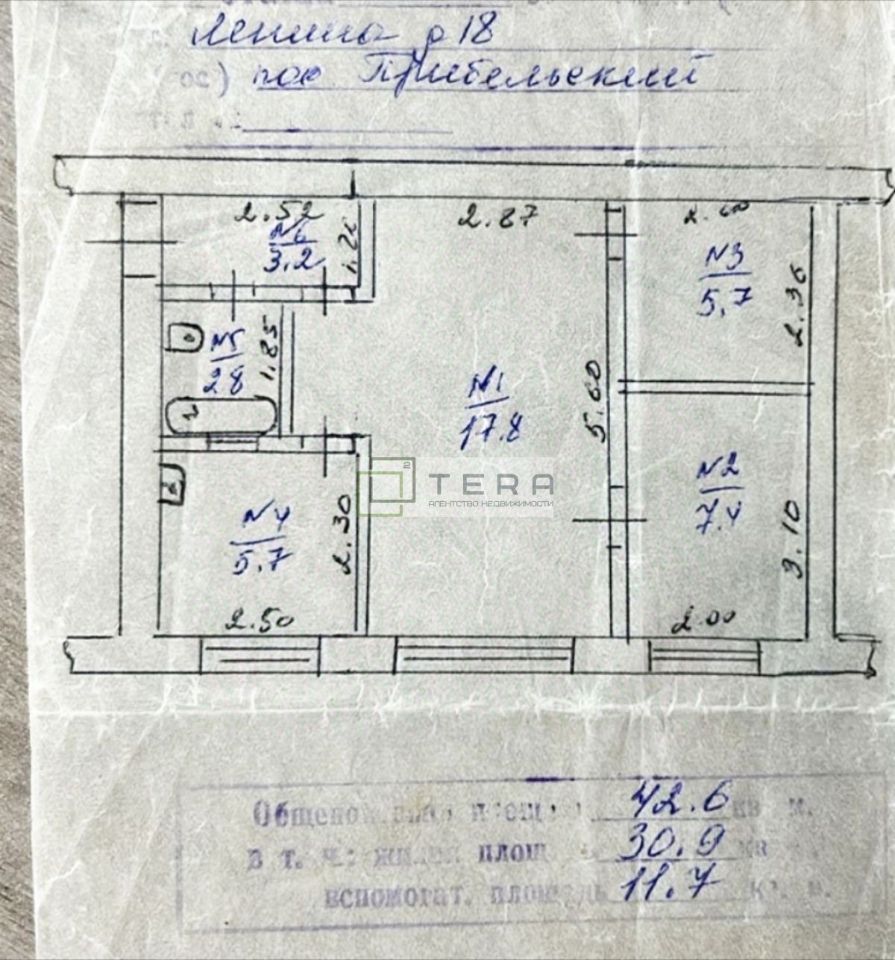 Ленина д 18
пос Прибельский
2.52
№6
3.2
1.26
2.87
№3
5.7
2.36
№5
2.8
1.85
№1
17.8
5.60
TERA
АГЕНТСТВО НЕДВИЖИМОСТИ
№2
7.4
3.10
2.00
№4
5.7
2.30
2.50
42.6 кв м.
в т. ч: жилая площ 30.9 кв
вспомогат. площадь 11.7 кв. м.